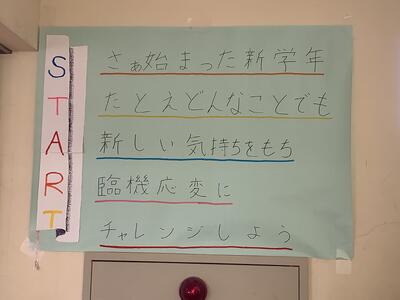 START
さぁ始まった新学年
たとえどんなことでも
新しい気持ちをもち
臨機応変に
チャレンジしよう